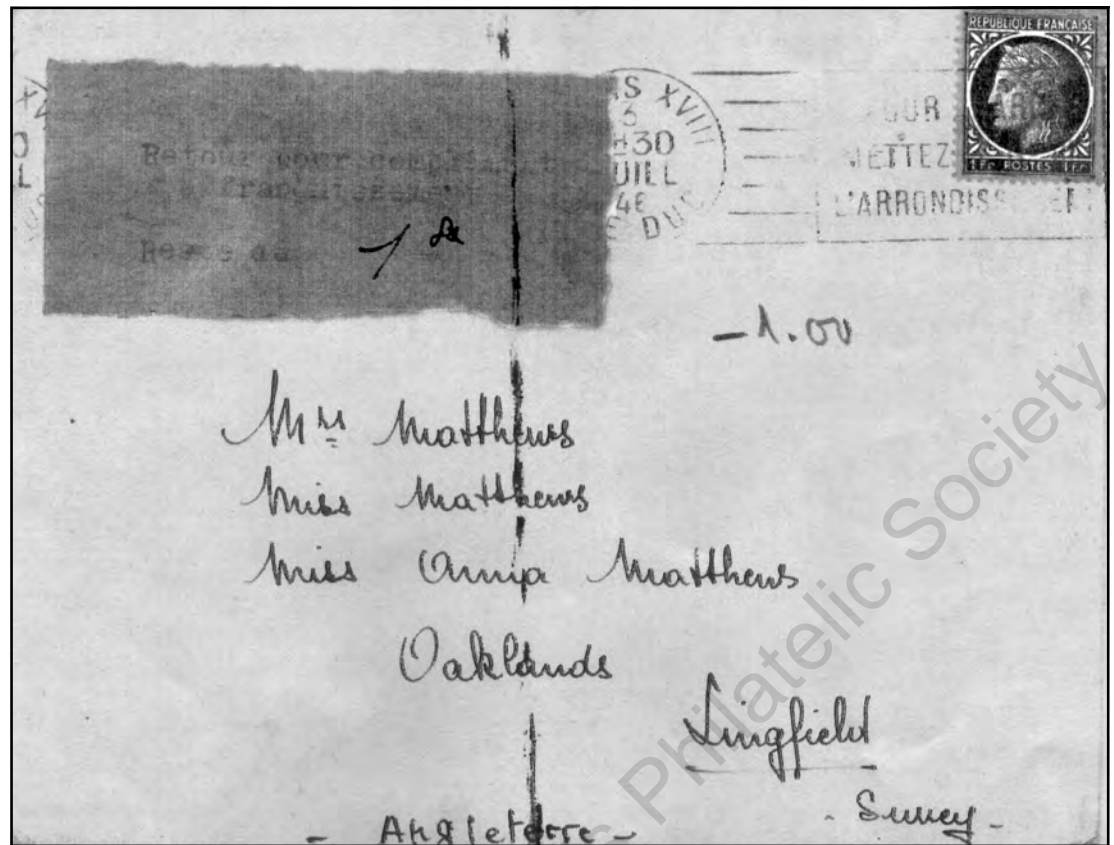 REPUBLIQUE FRANÇAISE
1 Fr. POSTES 1 Fr.
IS XVIII
3
H30
UILL
46
DUC
OUR
METTEZ
L'ARRONDISSEMENT
Retour pour
d'affranchissement
Reste dû
1
-1.00
Mrs Matthews
Miss Matthews
Miss Matthews
Oaklands
Lingfield
- Surrey -
- Angleterre -
Philatelic Society